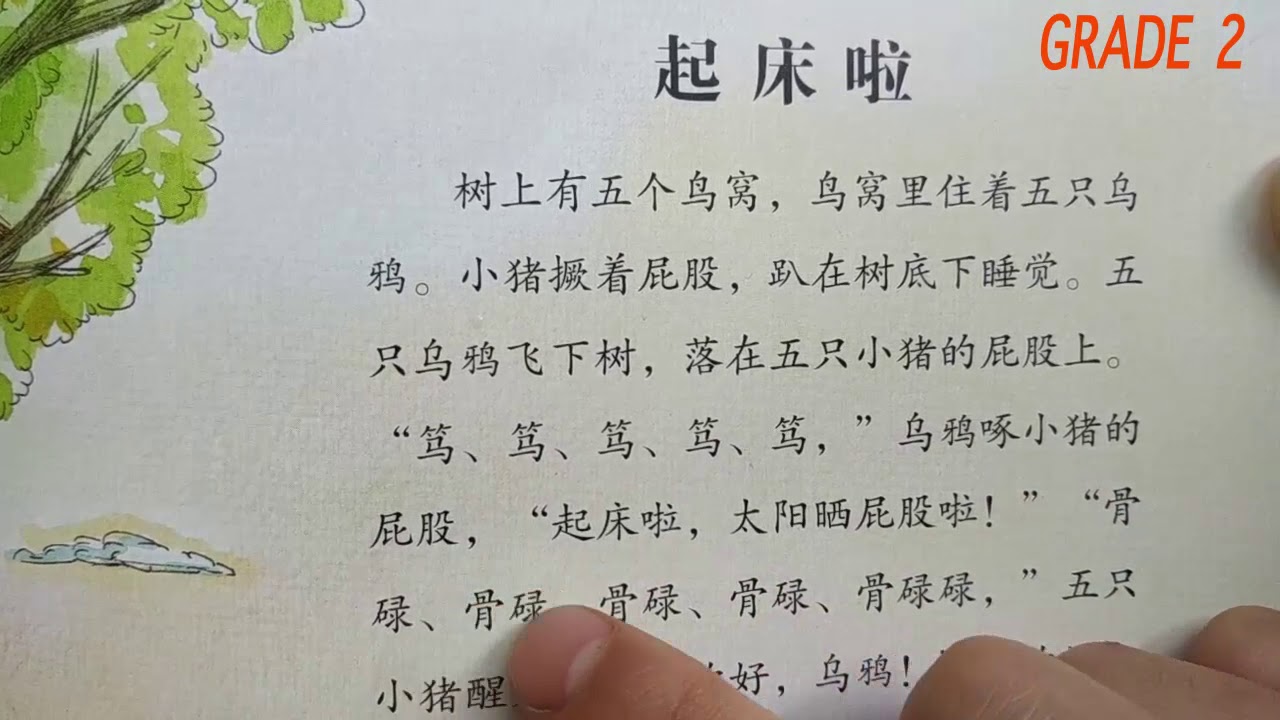 GRADE 2
起床啦
树上有五个鸟窝，鸟窝里住着五只乌
鸦。小猪撅着屁股，趴在树底下睡觉。五
只乌鸦飞下树，落在五只小猪的屁股上。
“笃、笃、笃、笃、笃，”乌鸦啄小猪的
屁股，“起床啦，太阳晒屁股啦！”“骨
碌、骨碌、骨碌、骨碌、骨碌碌，”五只
小猪醒 好，乌鸦！